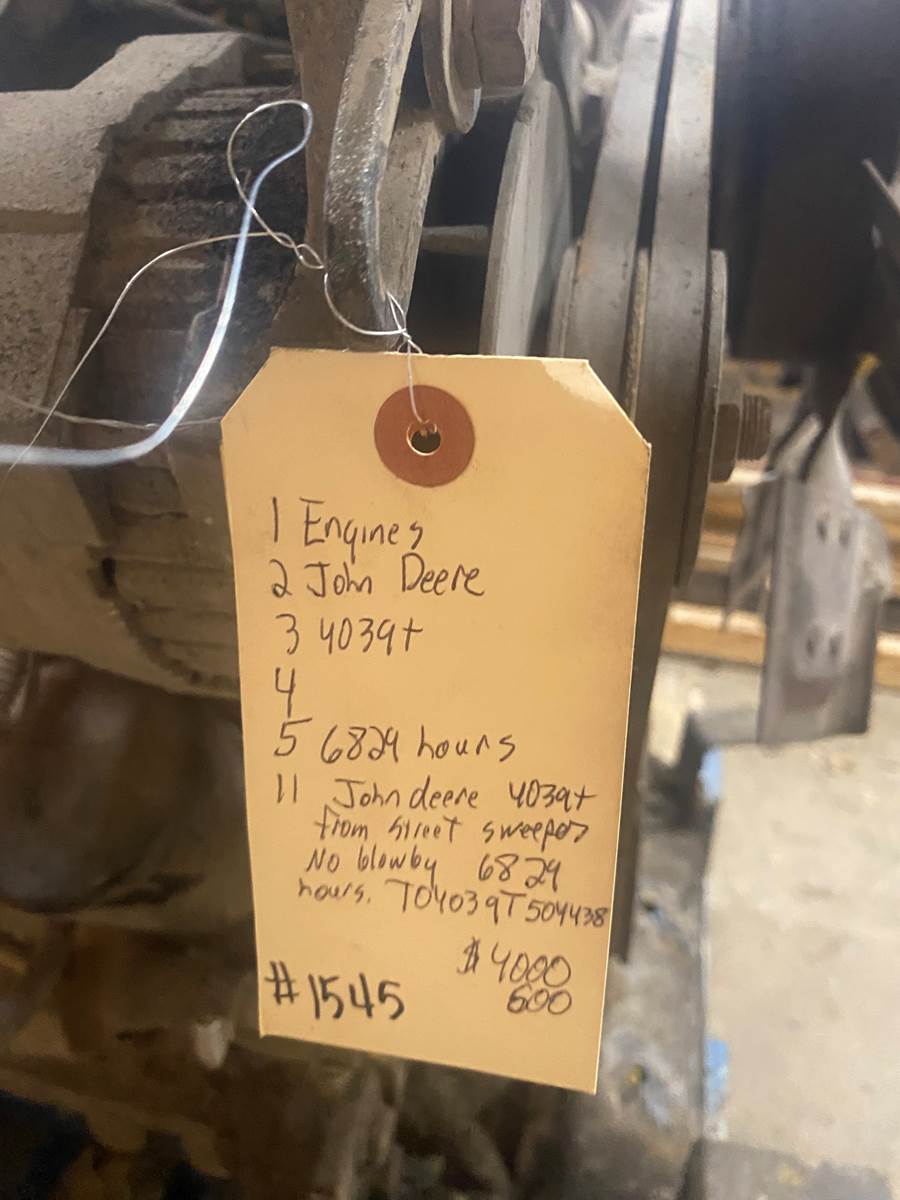 1 Engines
2 John Deere
3 4039t
4
5 6829 hours
11 John deere 4039t
from street sweeper
No blowby 6829
hours. T04039T504438
$4000
#1545 600